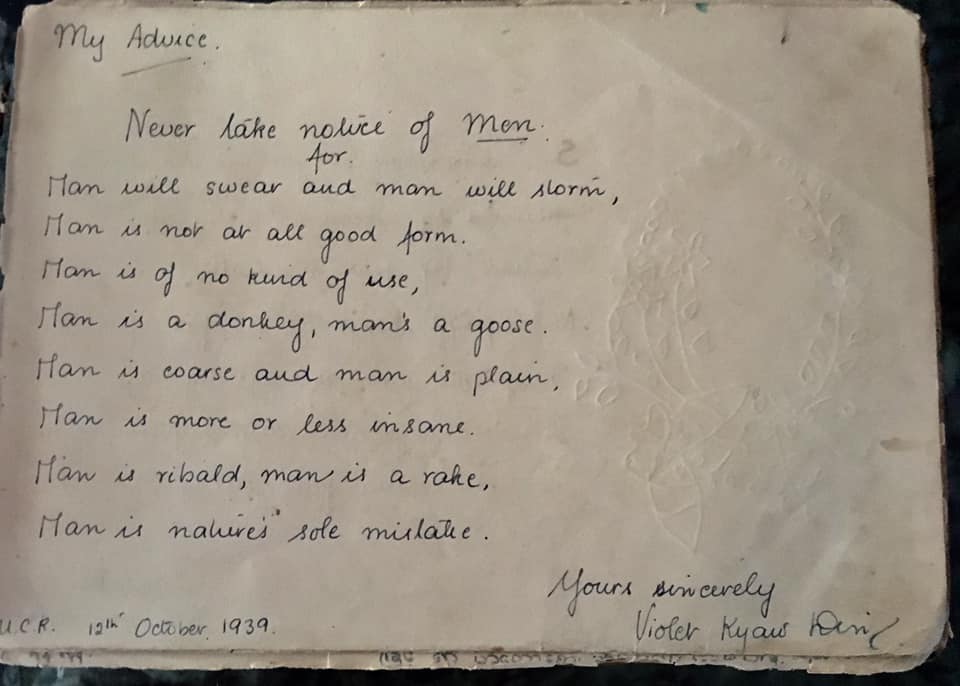 My Advice.
Never take notice of Men.
for.
Man will swear and man will storm,
Man is not at all good form.
Man is of no kind of use,
Man is a donkey, man's a goose.
Man is coarse and man is plain,
Man is more or less insane.
Man is ribald, man is a rake,
Man is nature's sole mistake.
Yours sincerely
Violet Kyaw
U.C.R. 12th October, 1939.